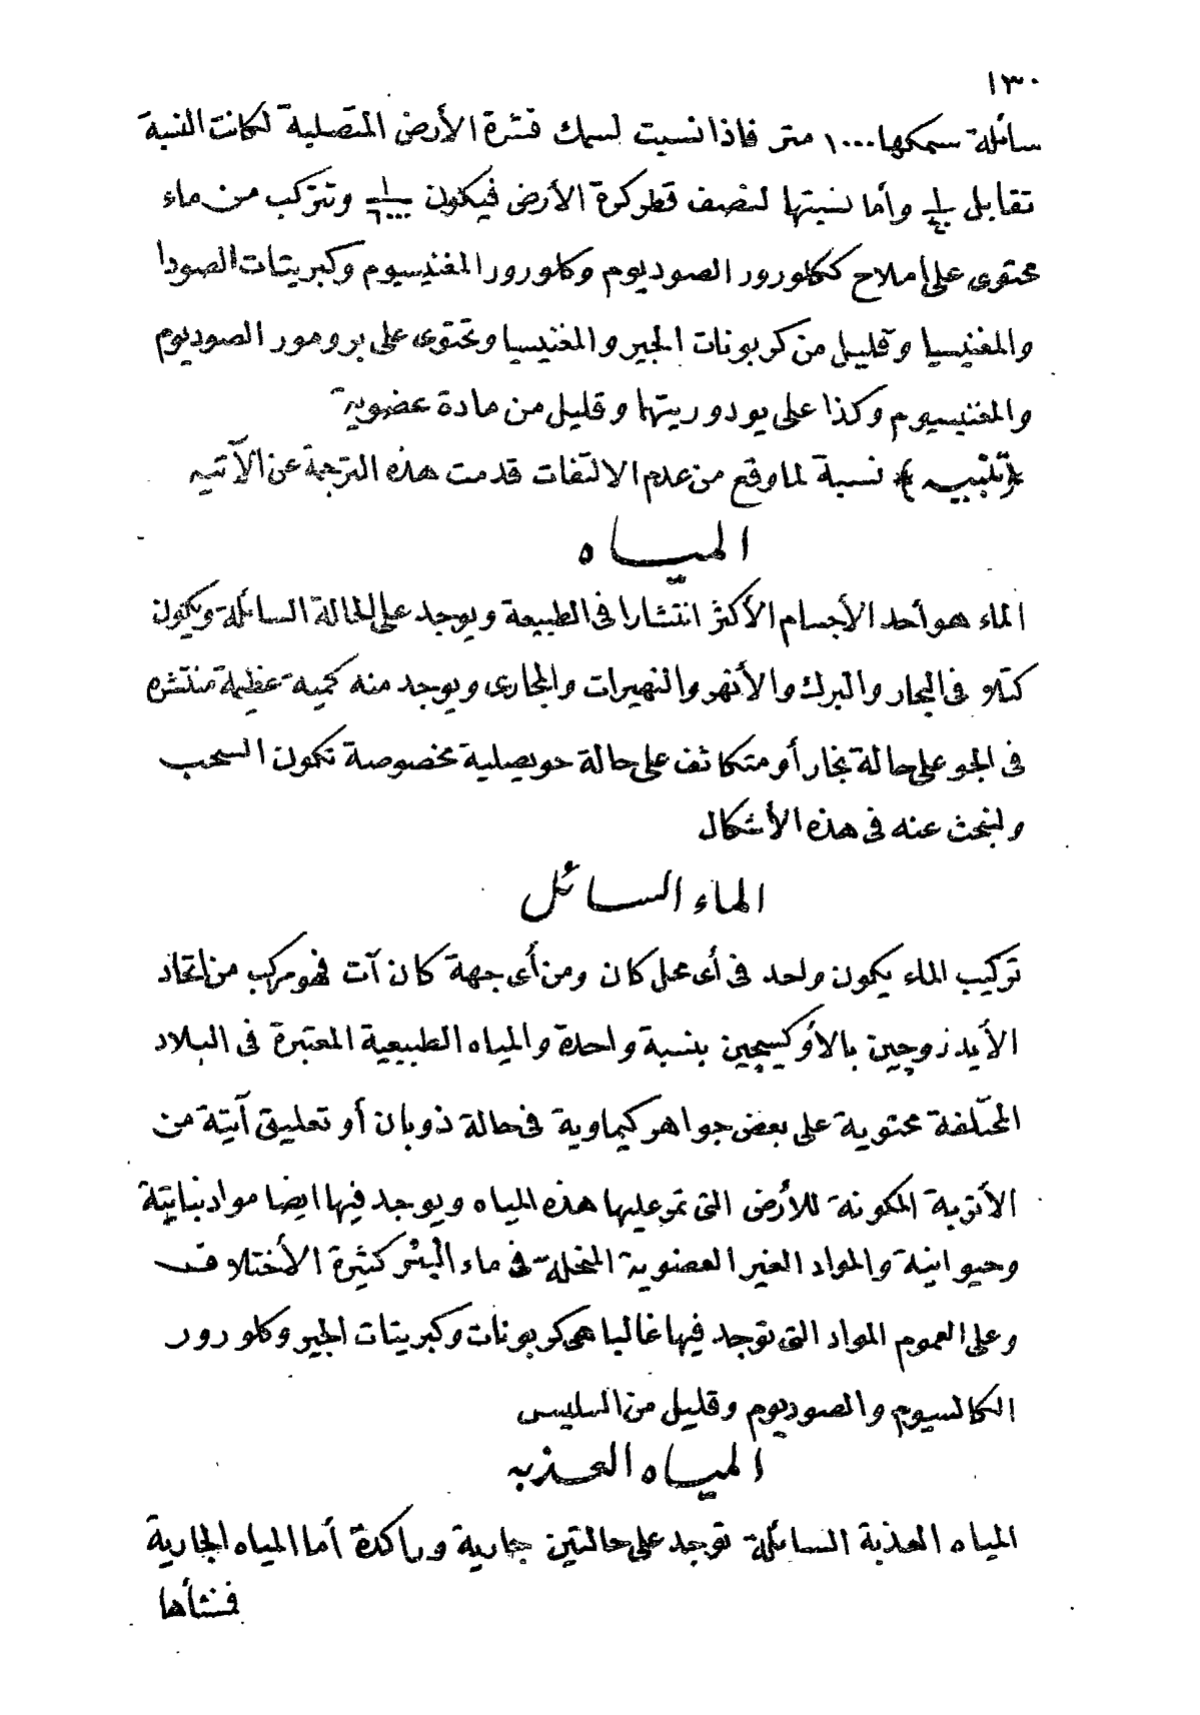 ١٣٠
سائلة سمكها ١٠٠٠ متر فاذا نسبت لسمك قشرة الأرض المتصلبة لكانت النسبة
تقابل وأما نسبتها لنصف قطر كرة الأرض فيكون وتتركب من ماء
محتوى على أملاح ككلورور الصوديوم وكلورور المغنيسيوم وكبريتات الصودا
والمغنيسيا وقليل من كربونات الجير والمغنيسيا وتحتوى على برومور الصوديوم
والمغنيسيوم وكذا على يودوريتهما وقليل من مادة عضوية
﴿تنبيه﴾ نسبة لما وقع من عدم الالتفات قدمت هذه الترجمة عن الآتيه
الميـاه
الماء هو أحد الأجسام الأكثر انتشارا فى الطبيعة ويوجد على الحالة السائلة ويكون
كتلا فى البحار والبرك والأنهر والنهيرات والمجارى ويوجد منه كمية عظيمة منتشره
فى الجو على حالة بخار أو متكاثف على حالة حويصلية مخصوصة تكون السحب
ولنبحث عنه فى هذه الأشكال
الماء السائل
تركيب الماء يكون واحد فى أى محل كان ومن أى جهة كان آت فهو مركب من اتحاد
الأيدزوجين بالأوكسيجين بنسبة واحدة والمياه الطبيعية المعتبرة فى البلاد
المختلفة محتوية على بعض جواهر كيماوية فى حالة ذوبان أو تعليق آتية من
الأتربة المكونة للأرض التى تمر عليها هذه المياه ويوجد فيها ايضا مواد نباتية
وحيوانية والمواد الغير العضوية المنحلة فى ماء البئر كثيرة الأختلاف
وعلى العموم المواد التى توجد فيها غالبا هى كربونات وكبريتات الجير وكلورور
الكالسيوم والصوديوم وقليل من السليس
الميـاه العـذبه
المياه العذبة السائلة توجد على حالتين جارية وراكدة أما المياه الجارية
فمنشأها